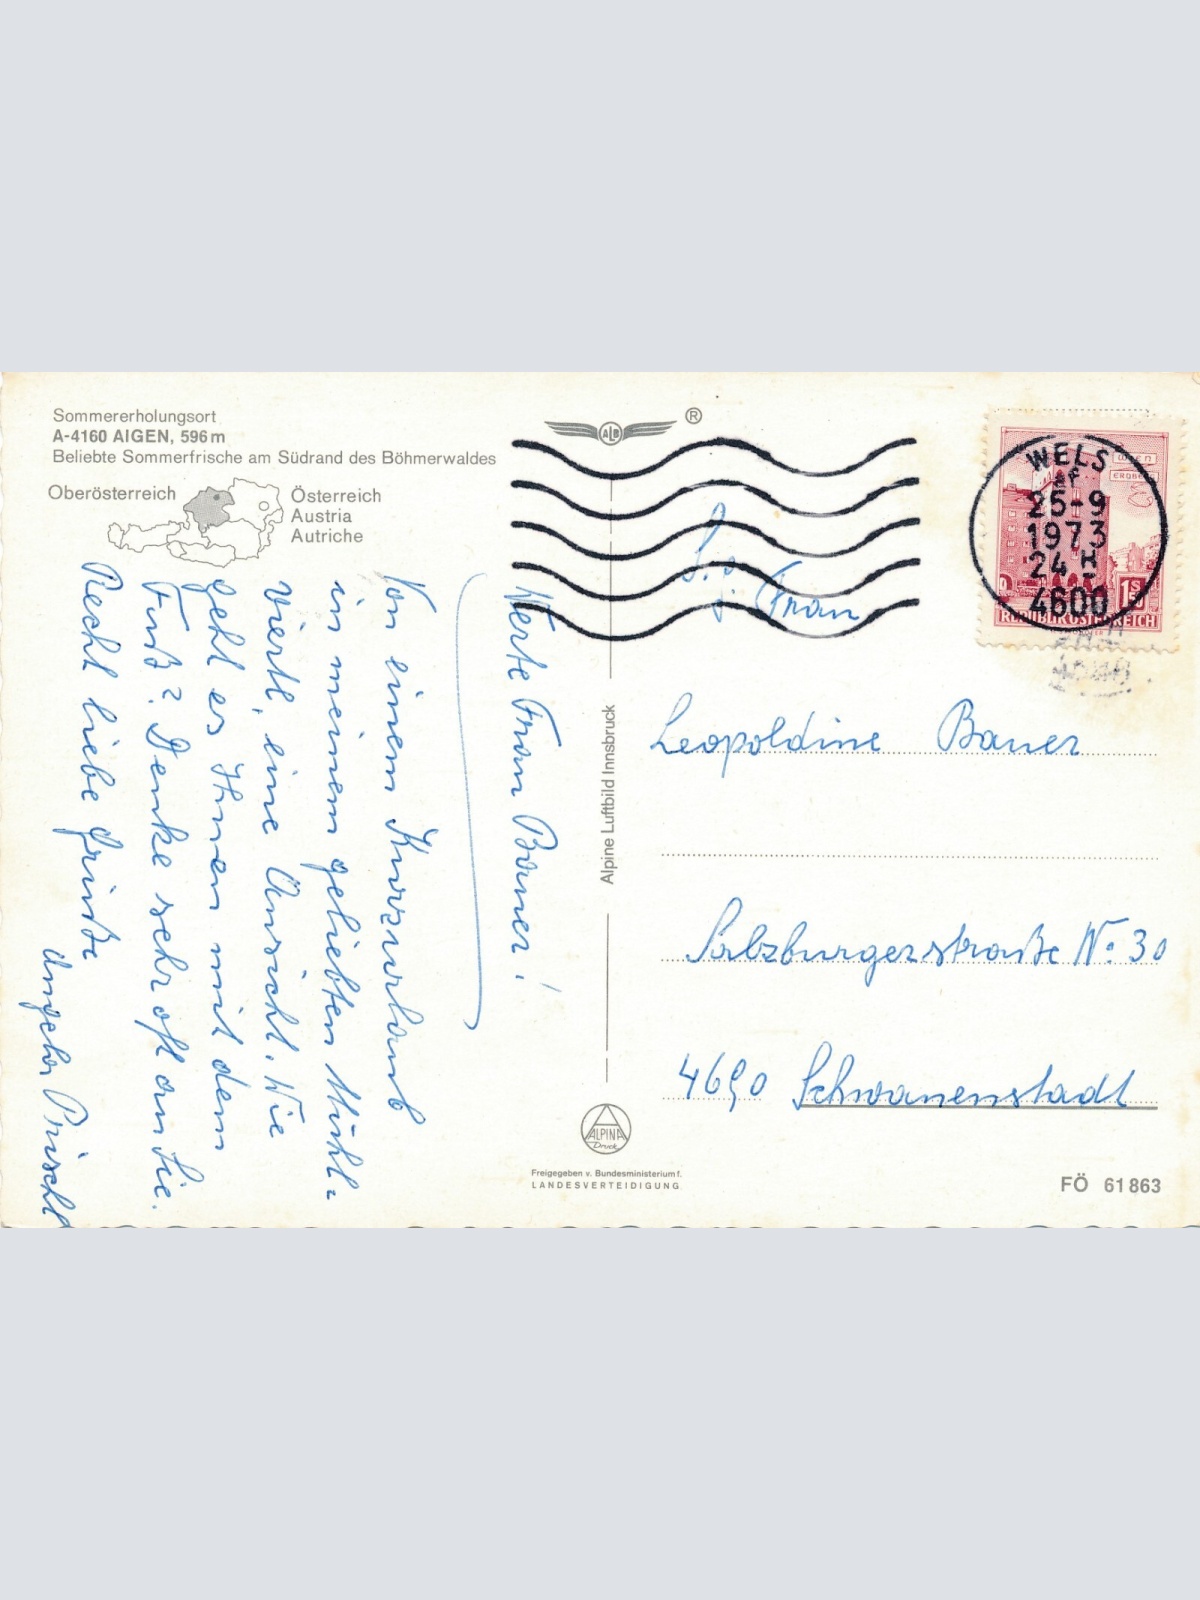 Sommererholungsort
A-4160 AIGEN, 596 m
Beliebte Sommerfrische am Südrand des Böhmerwaldes
Oberösterreich
Österreich
Austria
Autriche
Werte Frau Bauer!
Von einem Kurzurlaub
in meinem geliebten Mühl=
viertl, eine Ansicht. Wie
geht es Ihnen mit dem
Fuß? Denke sehr oft an Sie.
Recht liebe Grüße
ALB
®
Alpine Luftbild Innsbruck
ALPINA
Druck
Freigegeben v. Bundesministerium f.
LANDESVERTEIDIGUNG
WIEN
ERDBERG
1 S 50
REPUBLIK ÖSTERREICH
WELS
25-9
1973
24 H
4600
Frau
Leopoldine Bauer
Salzburgerstraße No 30
4690 Schwanenstadt
FÖ 61 863